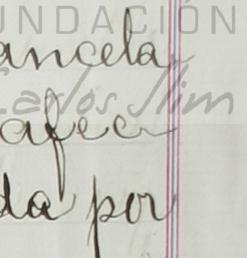 UNDACIÓN
ancela
Carlos Slim
afee
da por